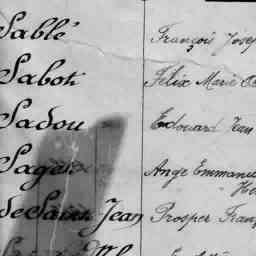 Sablé François Jose
Sabot Félix Marie
Sadou Edouard Jean
Sage Ange Emmanu
He
de Saint Jean Prosper Franç